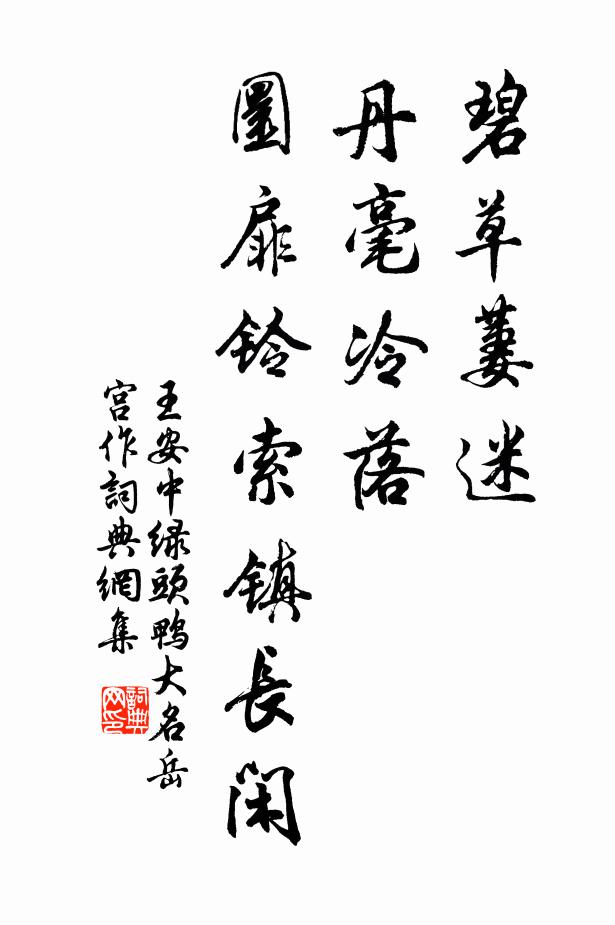 碧草萋迷
丹毫冷落
圜扉鈴索鎮長閑
王安中绿頭鴨大名岳
宫作詞典網集
詞典
网印